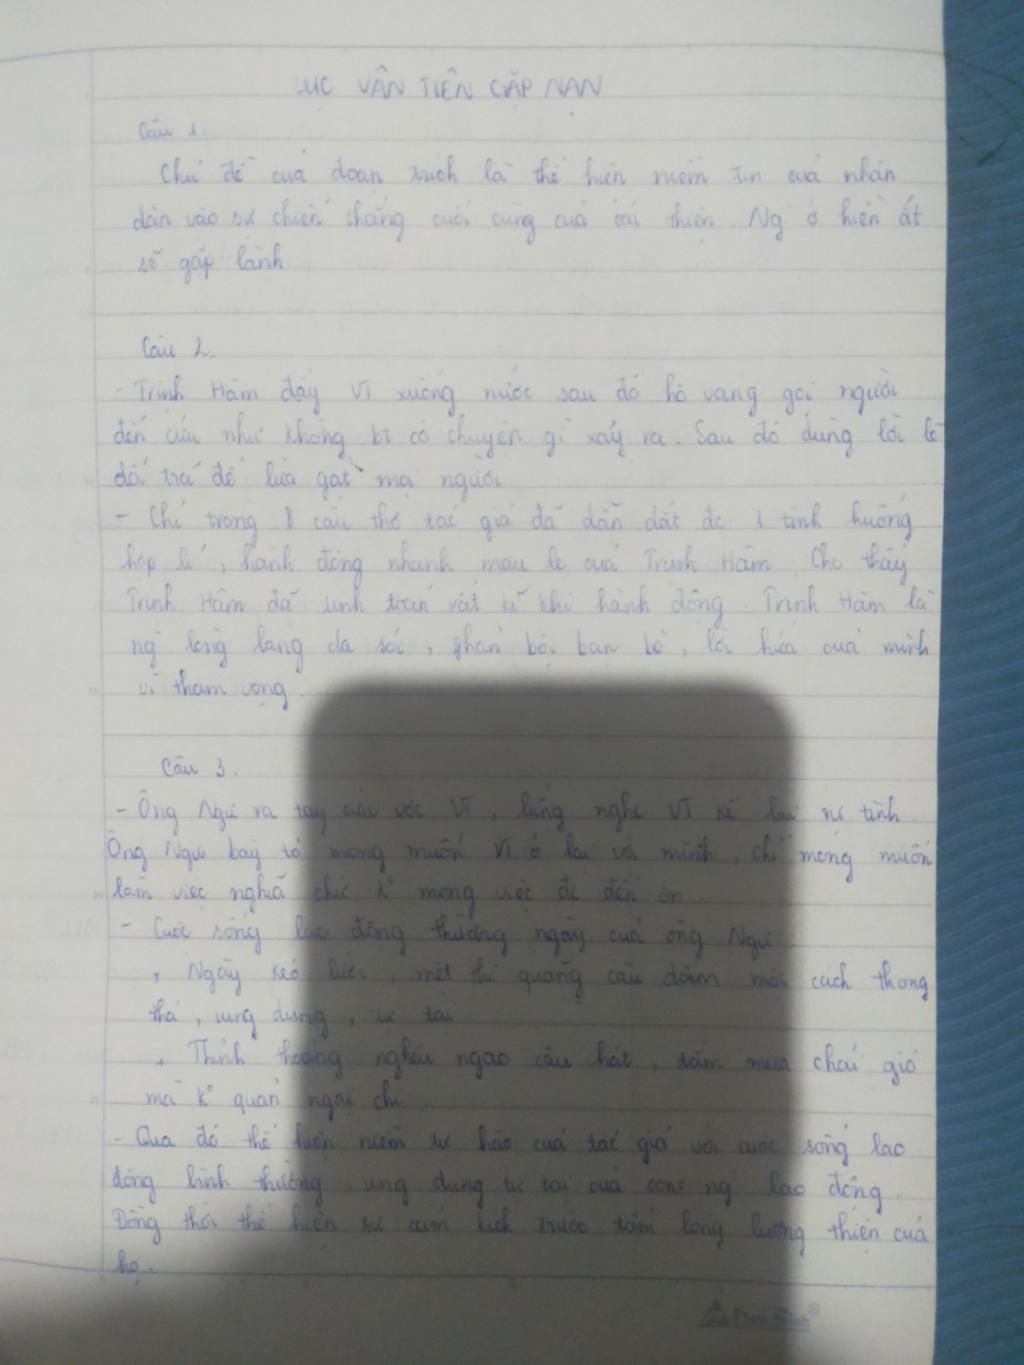 LỤC VÂN TIÊN GẶP NẠN
Câu 1.
Chủ đề của đoạn trích là thể hiện niềm tin của nhân
dân vào sự chiến thắng cuối cùng của cái thiện. Ng ở hiền ắt
sẽ gặp lành
Câu 2.
- Trịnh Hâm đẩy VT xuống nước sau đó hô vang gọi người
đến cứu như không bt có chuyện gì xảy ra. Sau đó dùng lời lẽ
dối trá để lừa gạt mọi người
- Chỉ trong 8 câu thơ tác giả đã dẫn dắt đc 1 tình huống
hợp lí, hành động nhanh mau lẹ của Trịnh Hâm. Cho thấy
Trịnh Hâm đã tính toán rất kĩ khi hành động. Trịnh Hâm là
ng lòng lang dạ sói, phản bội bạn bè, lời hứa của mình
vì tham vọng.
Câu 3.
- Ông Ngư ra tay cứu vớt VT, lắng nghe VT kể lại sự tình.
Ông Ngư bày tỏ mong muốn VT ở lại với mình, chỉ mong muốn
làm việc nghĩa chứ ko mong việc đc đền ơn.
- Cuộc sống lao động thường ngày của ông Ngư
, Ngày kéo lưới, mệt thì quăng câu dầm một cách thong
thả, ung dung, tự tại.
, Thỉnh thoảng nghêu ngao câu hát, tắm mưa chải gió
mà ko quản ngại chi.
- Qua đó thể hiện niềm tự hào của tác giả với cuộc sống lao
động bình thường, ung dung tự tại của ng lao động.
Đồng thời thể hiện sự cảm kích trước tấm lòng lương thiện của
họ.